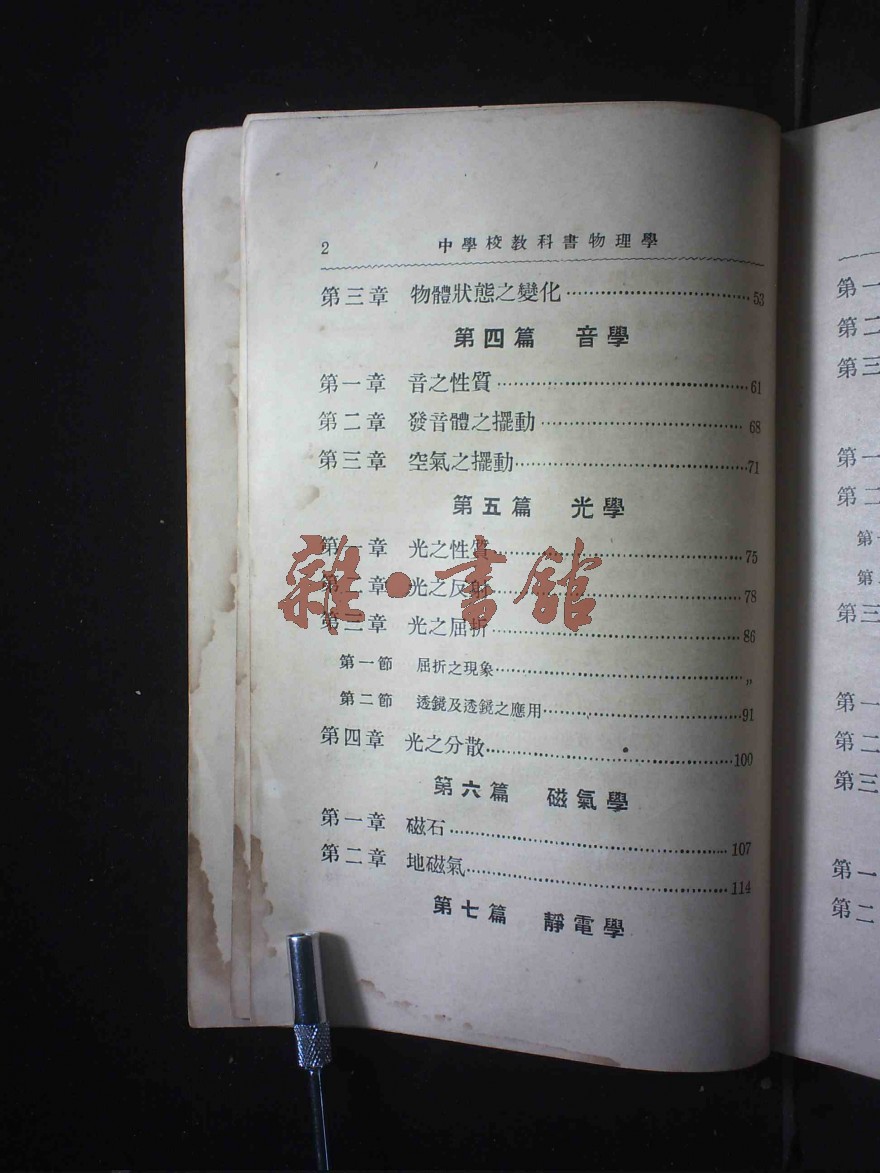 2 中學校教科書物理學
第三章 物體狀態之變化 53
第四篇 音學
第一章 音之性質 61
第二章 發音體之擺動 68
第三章 空氣之擺動 71
第五篇 光學
第一章 光之性質 75
第二章 光之反射 78
第三章 光之屈折 86
第一節 屈折之現象 〃
第二節 透鏡及透鏡之應用 91
第四章 光之分散 100
第六篇 磁氣學
第一章 磁石 107
第二章 地磁氣 114
第七篇 靜電學
雜·書館
第一
第二
第三
第一
第二
第三
第一
第二
第三
第一
第二